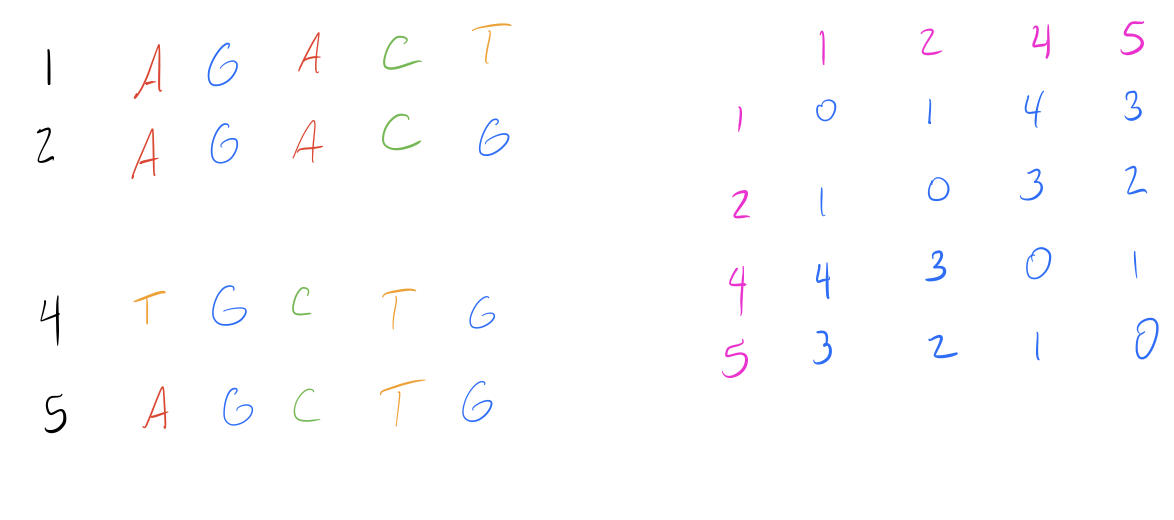 1 A G A C T
2 A G A C G
4 T G C T G
5 A G C T G
1 2 4 5
1 0 1 4 3
2 1 0 3 2
4 4 3 0 1
5 3 2 1 0